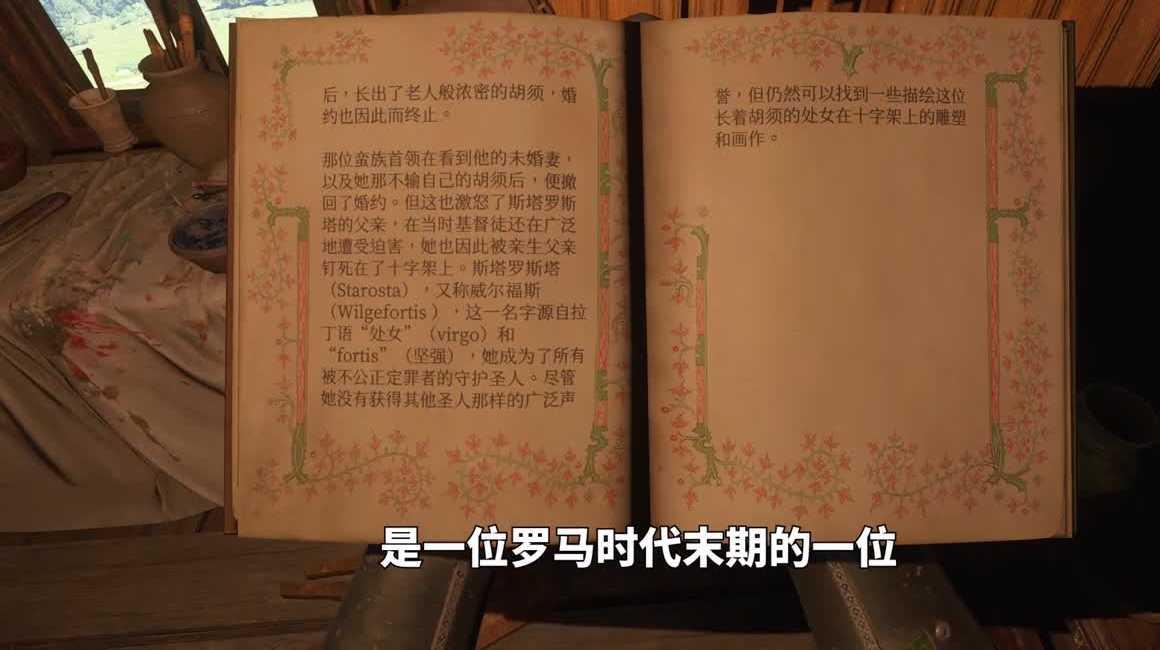 后，长出了老人般浓密的胡须，婚
约也因此而终止。
那位蛮族首领在看到他的未婚妻，
以及她那不输自己的胡须后，便撤
回了婚约。但这也激怒了斯塔罗斯
塔的父亲，在当时基督徒还在广泛
地遭受迫害，她也因此被亲生父亲
钉死在了十字架上。斯塔罗斯塔
（Starosta），又称威尔福斯
（Wilgefortis ），这一名字源自拉
丁语“处女”（virgo）和
“fortis”（坚强），她成为了所有
被不公正定罪者的守护圣人。尽管
她没有获得其他圣人那样的广泛声
誉，但仍然可以找到一些描绘这位
长着胡须的处女在十字架上的雕塑
和画作。
是一位罗马时代末期的一位